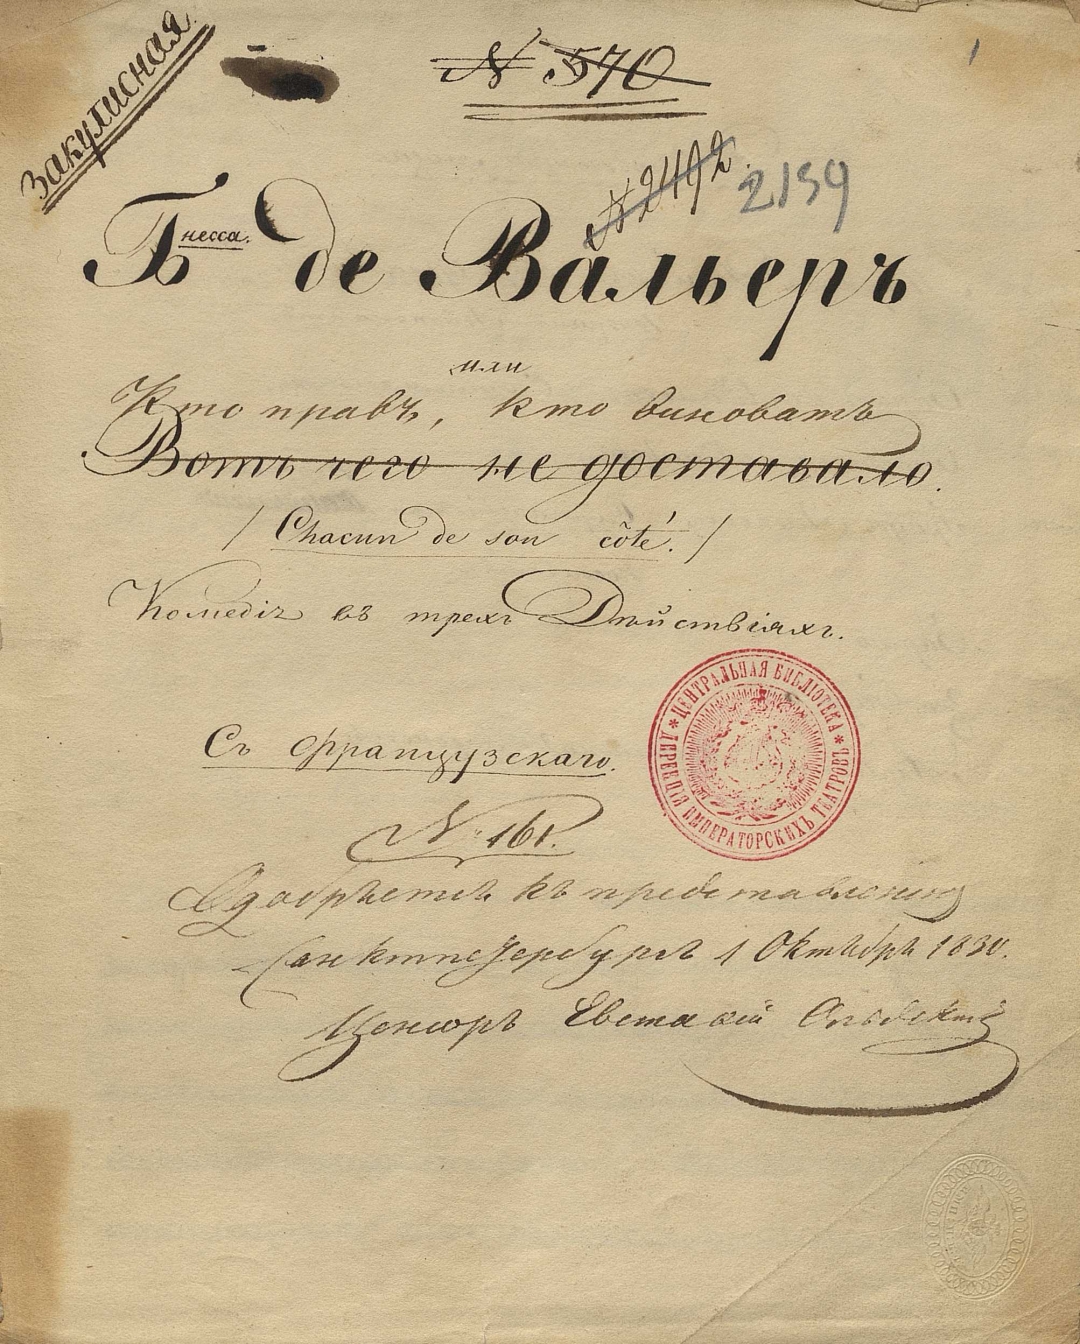 Закулисная
№ 570
1
№ 2492
2159
Бнесса. де Вальеръ
или
Кто правъ, кто виноватъ
Вотъ чего не доставало.
/ Chacun de son côté. /
Комедія въ трехъ Дѣйствіяхъ.
Съ французскаго.
ЦЕНТРАЛЬНАЯ БИБЛІОТЕКА * ДИРЕКЦІИ ИМПЕРАТОРСКИХЪ ТЕАТРОВЪ *
№ 161.
Одобряется къ представленію
Санктпетербургъ 1 Октября 1830.
Ценсоръ Евстафій